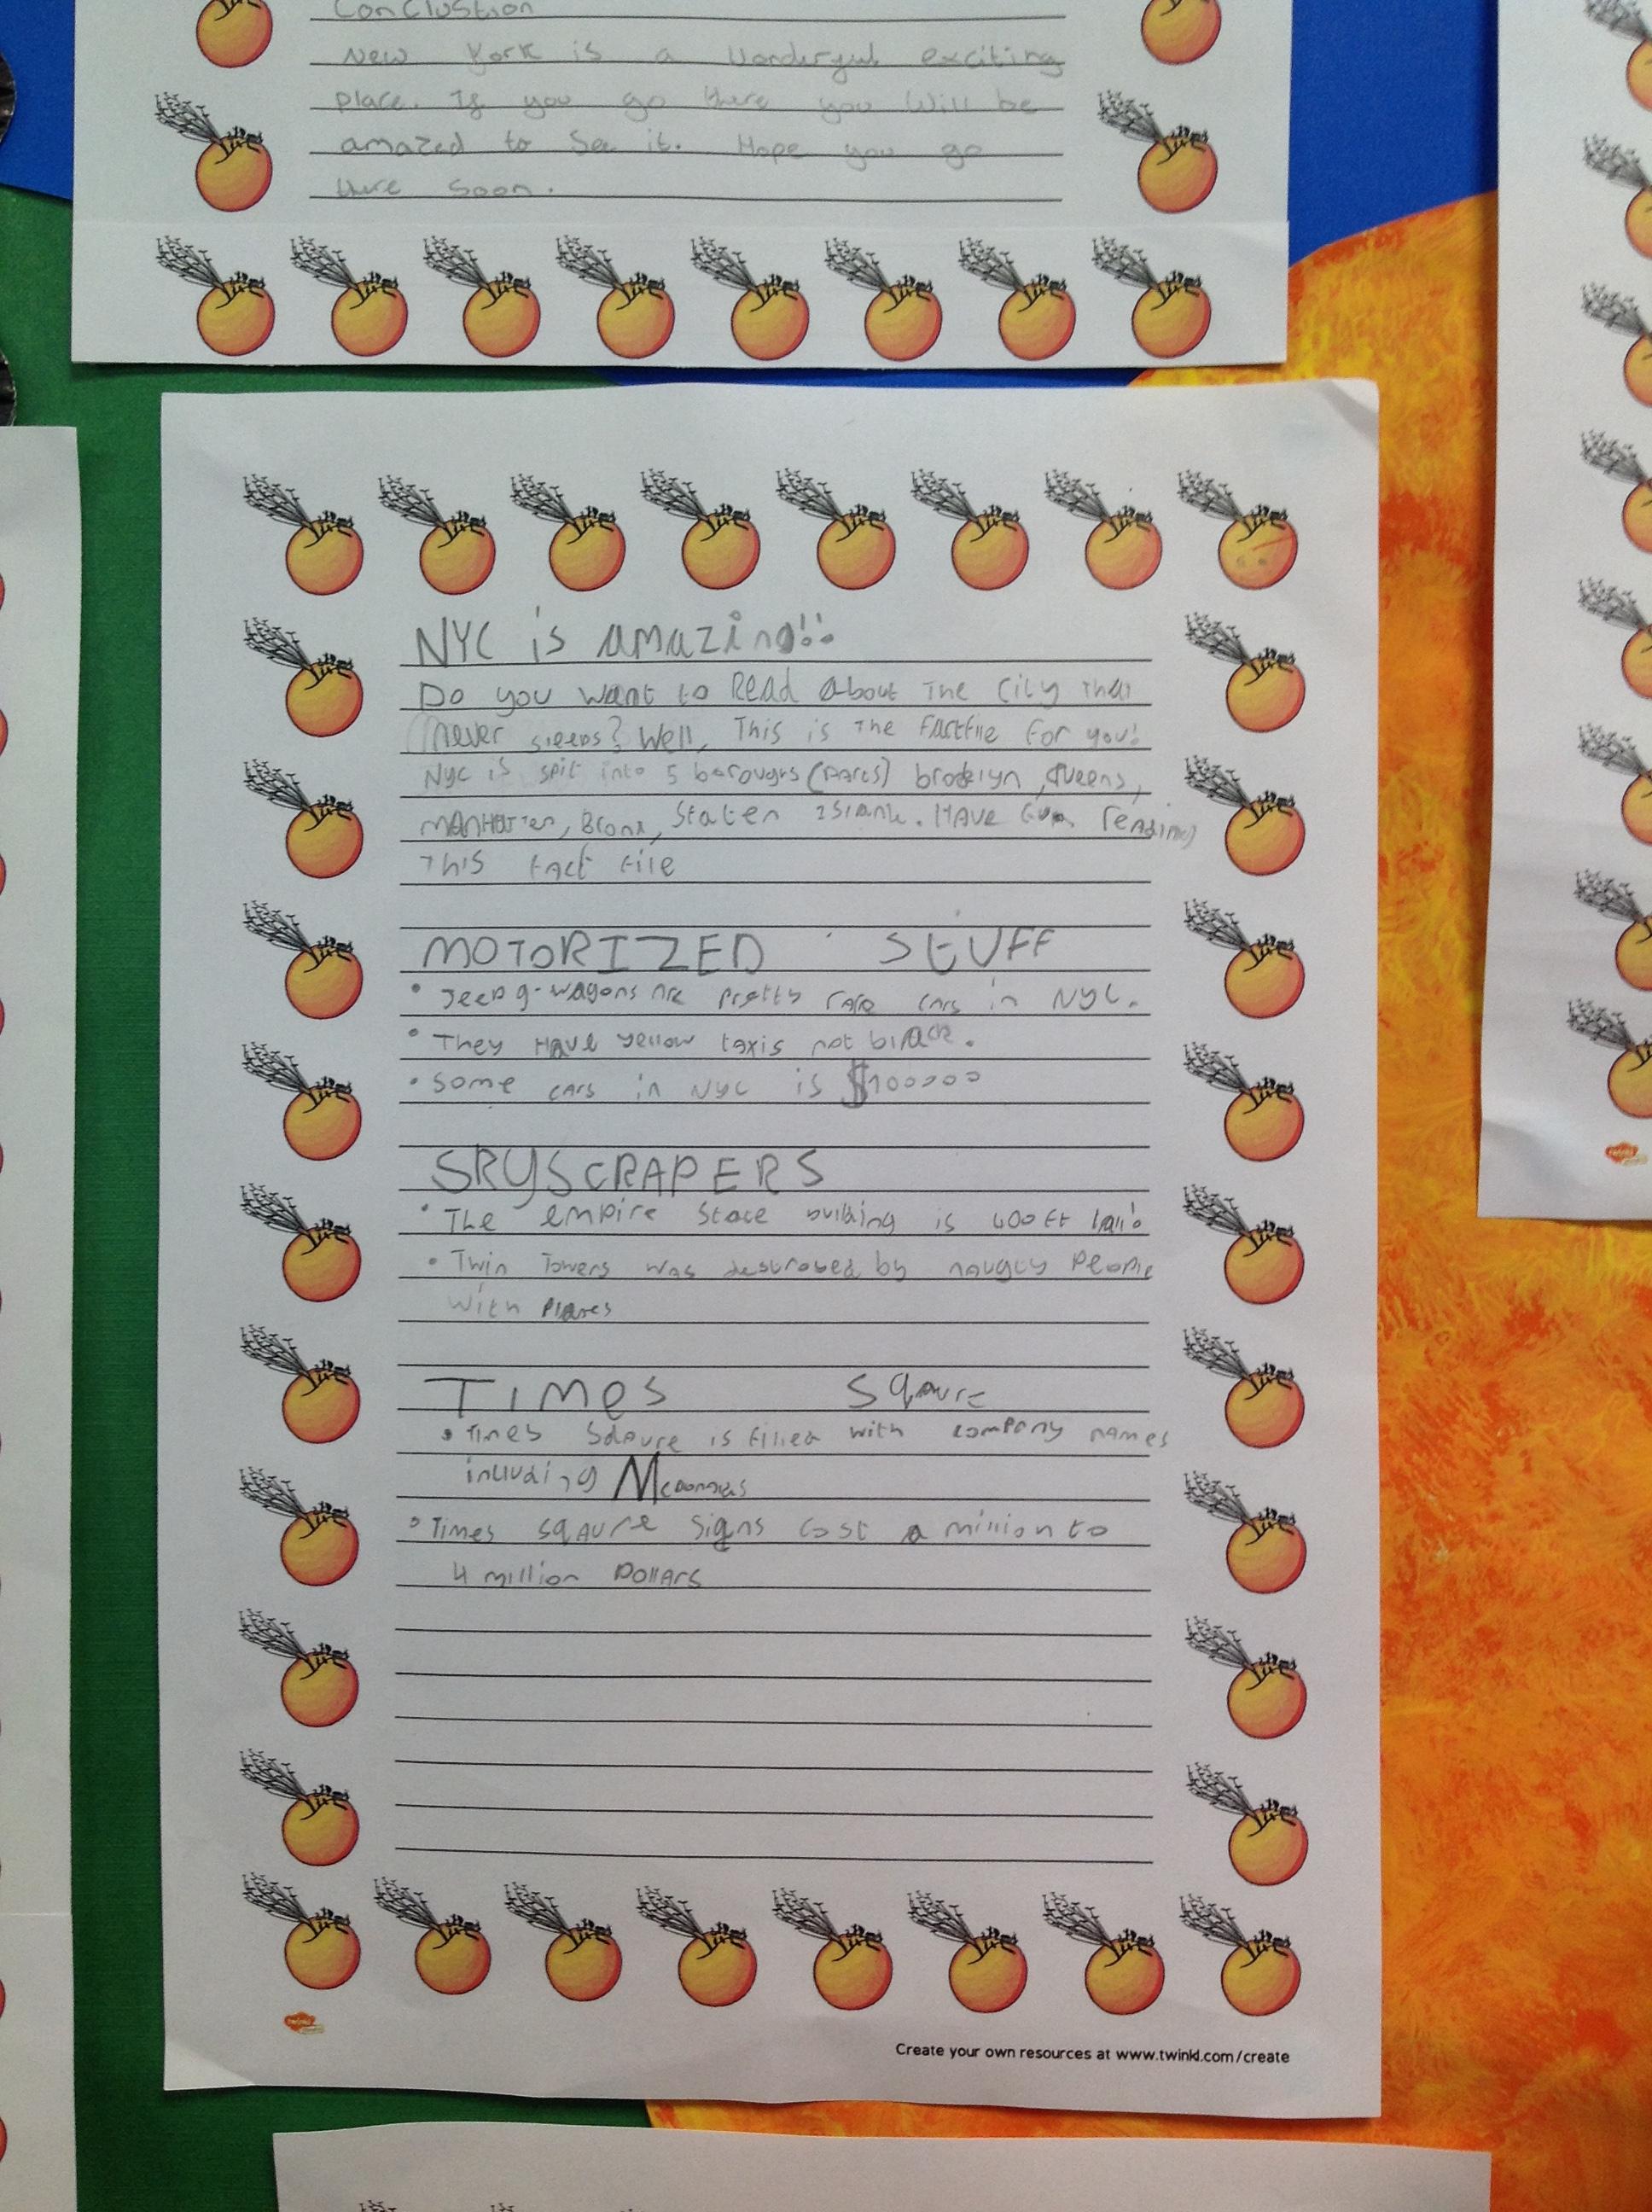 Conclustion
New York is a Wonderful exciting
Place. If you go there you will be
amazed to See it. Hope you go
there Soon.
NYC is amazing!!
Do you want to Read about The City That
never sleeps? Well, This is The Factfile For you!
Nyc is spit into 5 boroughs (Parts) brooklyn, Queens,
MANHATTEN, Bronx, Staten Island. HAVE Fun reading
This Fact File
MOTORIZED STUFF
• Jeep g-wagons are pretty rare cars in NYC.
• They Have yellow taxis not black.
• Some cars in NYC is $100000
SKYSCRAPERS
• The empire State building is 400 Ft tall!
• Twin Towers was destroyed by naugty People
With Planes
TIMes Sqaure
• Times Sqaure is Filled with company names
including Mcdonalds
• Times sqaure Signs Cost a million to
4 million Dollars
twinkl
Create your own resources at www.twinkl.com/create
twinkl